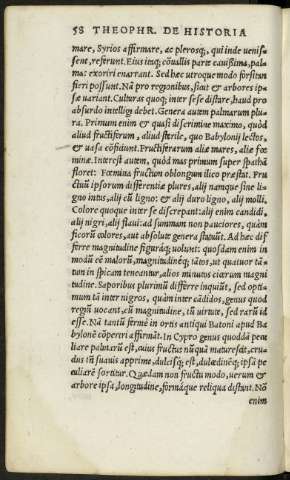 58 THEOPHR. DE HISTORIA
mare, Syrios affirmare, ac plerosq;, qui inde venis-
sent, referunt. Eius inq; cõuallis parte cauissima, pal-
ma: exoriri enarrant. Sed hæc utroque modo forsitan
fieri possunt. Nã pro regionibus, sicut & arbores ip-
sæ uariant. Culturas quoq; inter se se distare, haud pro
absurdo intelligi debet. Genera autem palmarum plu-
ra. Primum enim & quasi discrimine maximo, quòd
aliud fructiferum, aliud sterile, quo Babylonij lectos,
& uasa cõfidunt. Fructiferarum aliæ mares, aliæ foe-
minæ. Interest autem, quòd mas primum super spatham
floret: Foemina fructum oblongum ilico præstat. Fru
ctuũ ipsorum differentiæ plures, alij nanque sine li-
gno intus, alij cũ ligno: & alij duro ligno, alij molli.
Colore quoque inter se discrepant: alij enim candidi,
alij nigri, alij flaui: ad summam non pauciores, quàm
ficorũ colores, aut absolutè genera statuũt. Ad hæc dif
ferre magnitudine figuráq; uolunt: quosdam enim in
modũ eẽ malorũ, magnitudinéq; tãtos, ut quatuor tã-
tum in spicam teneantur, alios minutos ciarum magni
tudine. Saporibus plurimũ differre inquiũt, sed opti-
mum tã inter nigros, quàm inter cãdidos, genus quod
regiũ uocant, cũ magnitudine, tũ uirtute, sed rarũ id
esse. Nã tantũ fermè in ortis antiqui Batoni apud Ba
bylonẽ cõperiri affirmãt. In Cypro genus quoddã pecu
liare palmarũ est, cuius fructus nũquã maturescit, cru-
dus tñ suauis apprimè, dulcisq; est, dulcedinéq; ipsa pe
culiarẽ sortitur. Quædam non fructu modo, uerum &
arbore ipsa, longitudine, formáque reliqua distant. Nõ
enim